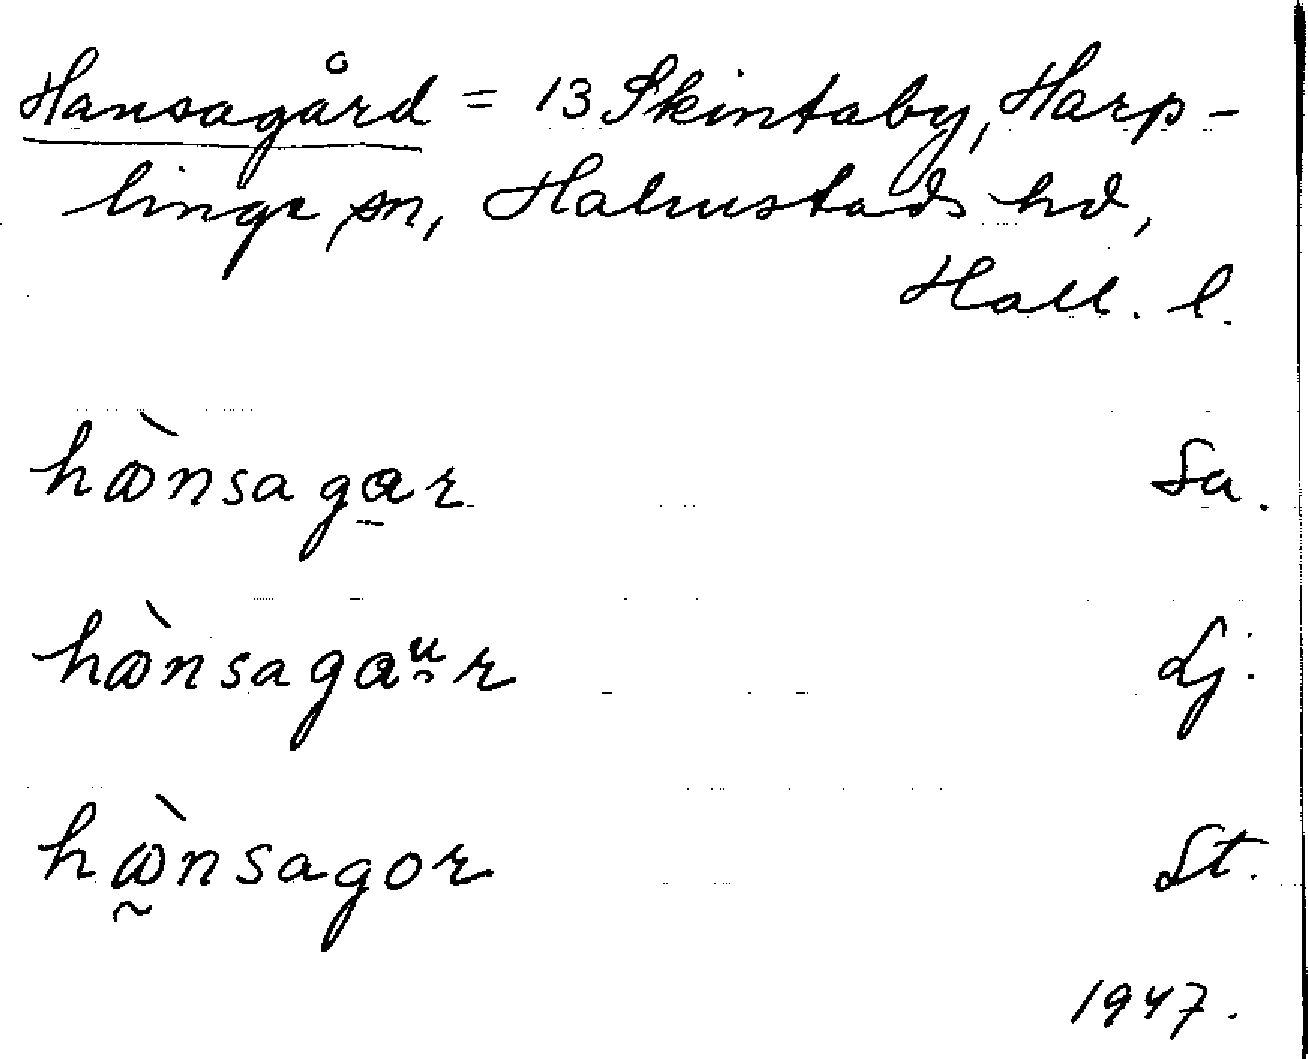 Hansagård = 13 Skintaby, Harp-
linge sn, Halmstads hd,
Hall. l.
hὰnsagar Sa.
hὰnsagaᵘr Lj.
hὰnsagor St.
1947.